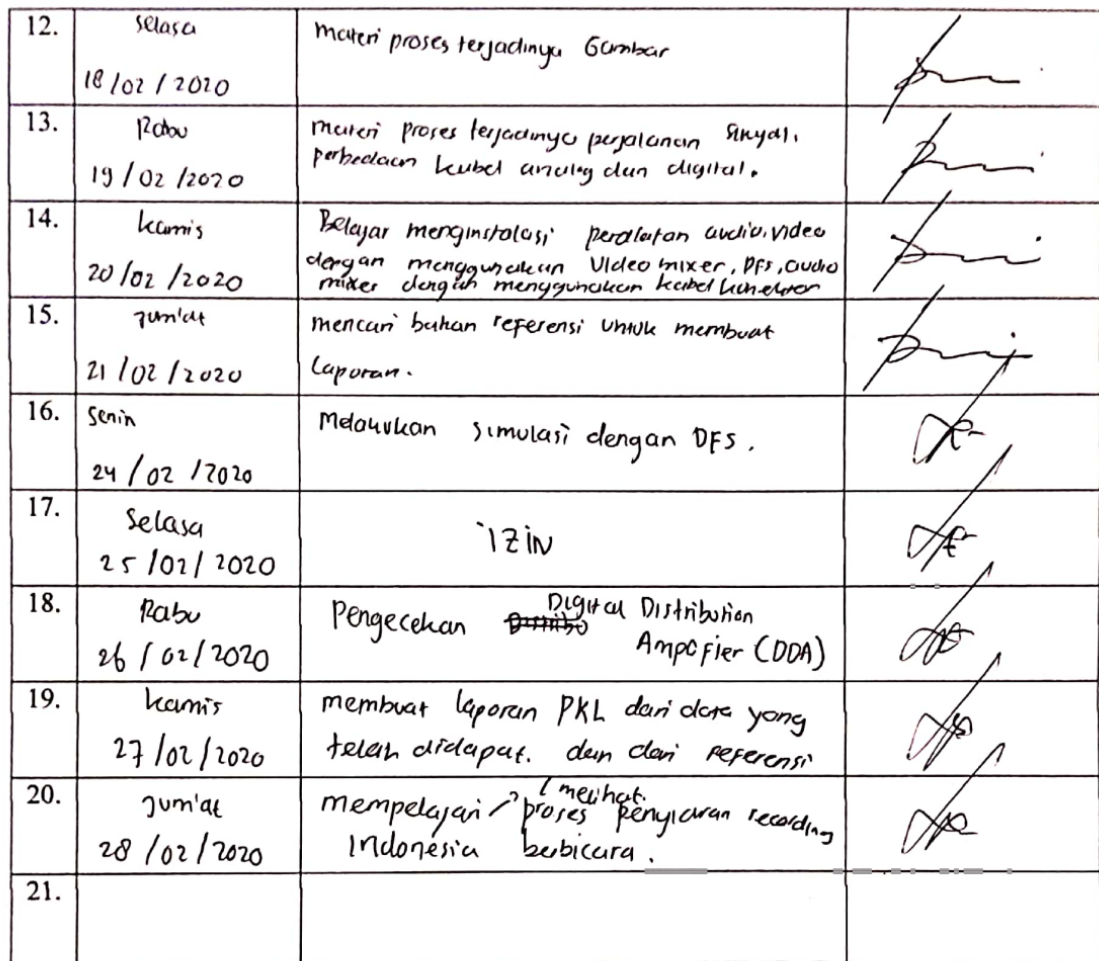 12.
Selasa
18/02/2020
materi proses terjadinya Gambar
13.
Rabu
19/02/2020
materi proses terjadinya perjalanan sinyal,
perbedaan kabel analog dan digital.
14.
Kamis
20/02/2020
Belajar menginstalasi peralatan audio, video
dengan menggunakan Video mixer, DFS, audio
mixer dengan menggunakan kabel
15.
Jum'at
21/02/2020
mencari bahan referensi untuk membuat
Laporan.
16.
Senin
24/02/2020
simulasi dengan DFS.
17.
Selasa
25/02/2020
izin
18.
Rabu
26/02/2020
Digital Distribution
Pengecekan
(DDA)
19.
Kamis
27/02/2020
membuat laporan PKL dari data yang
telah didapat. dan dari referensi
20.
Jum'at
28/02/2020
/melihat.
mempelajari proses penyiaran recording
Indonesia berbicara.
21.